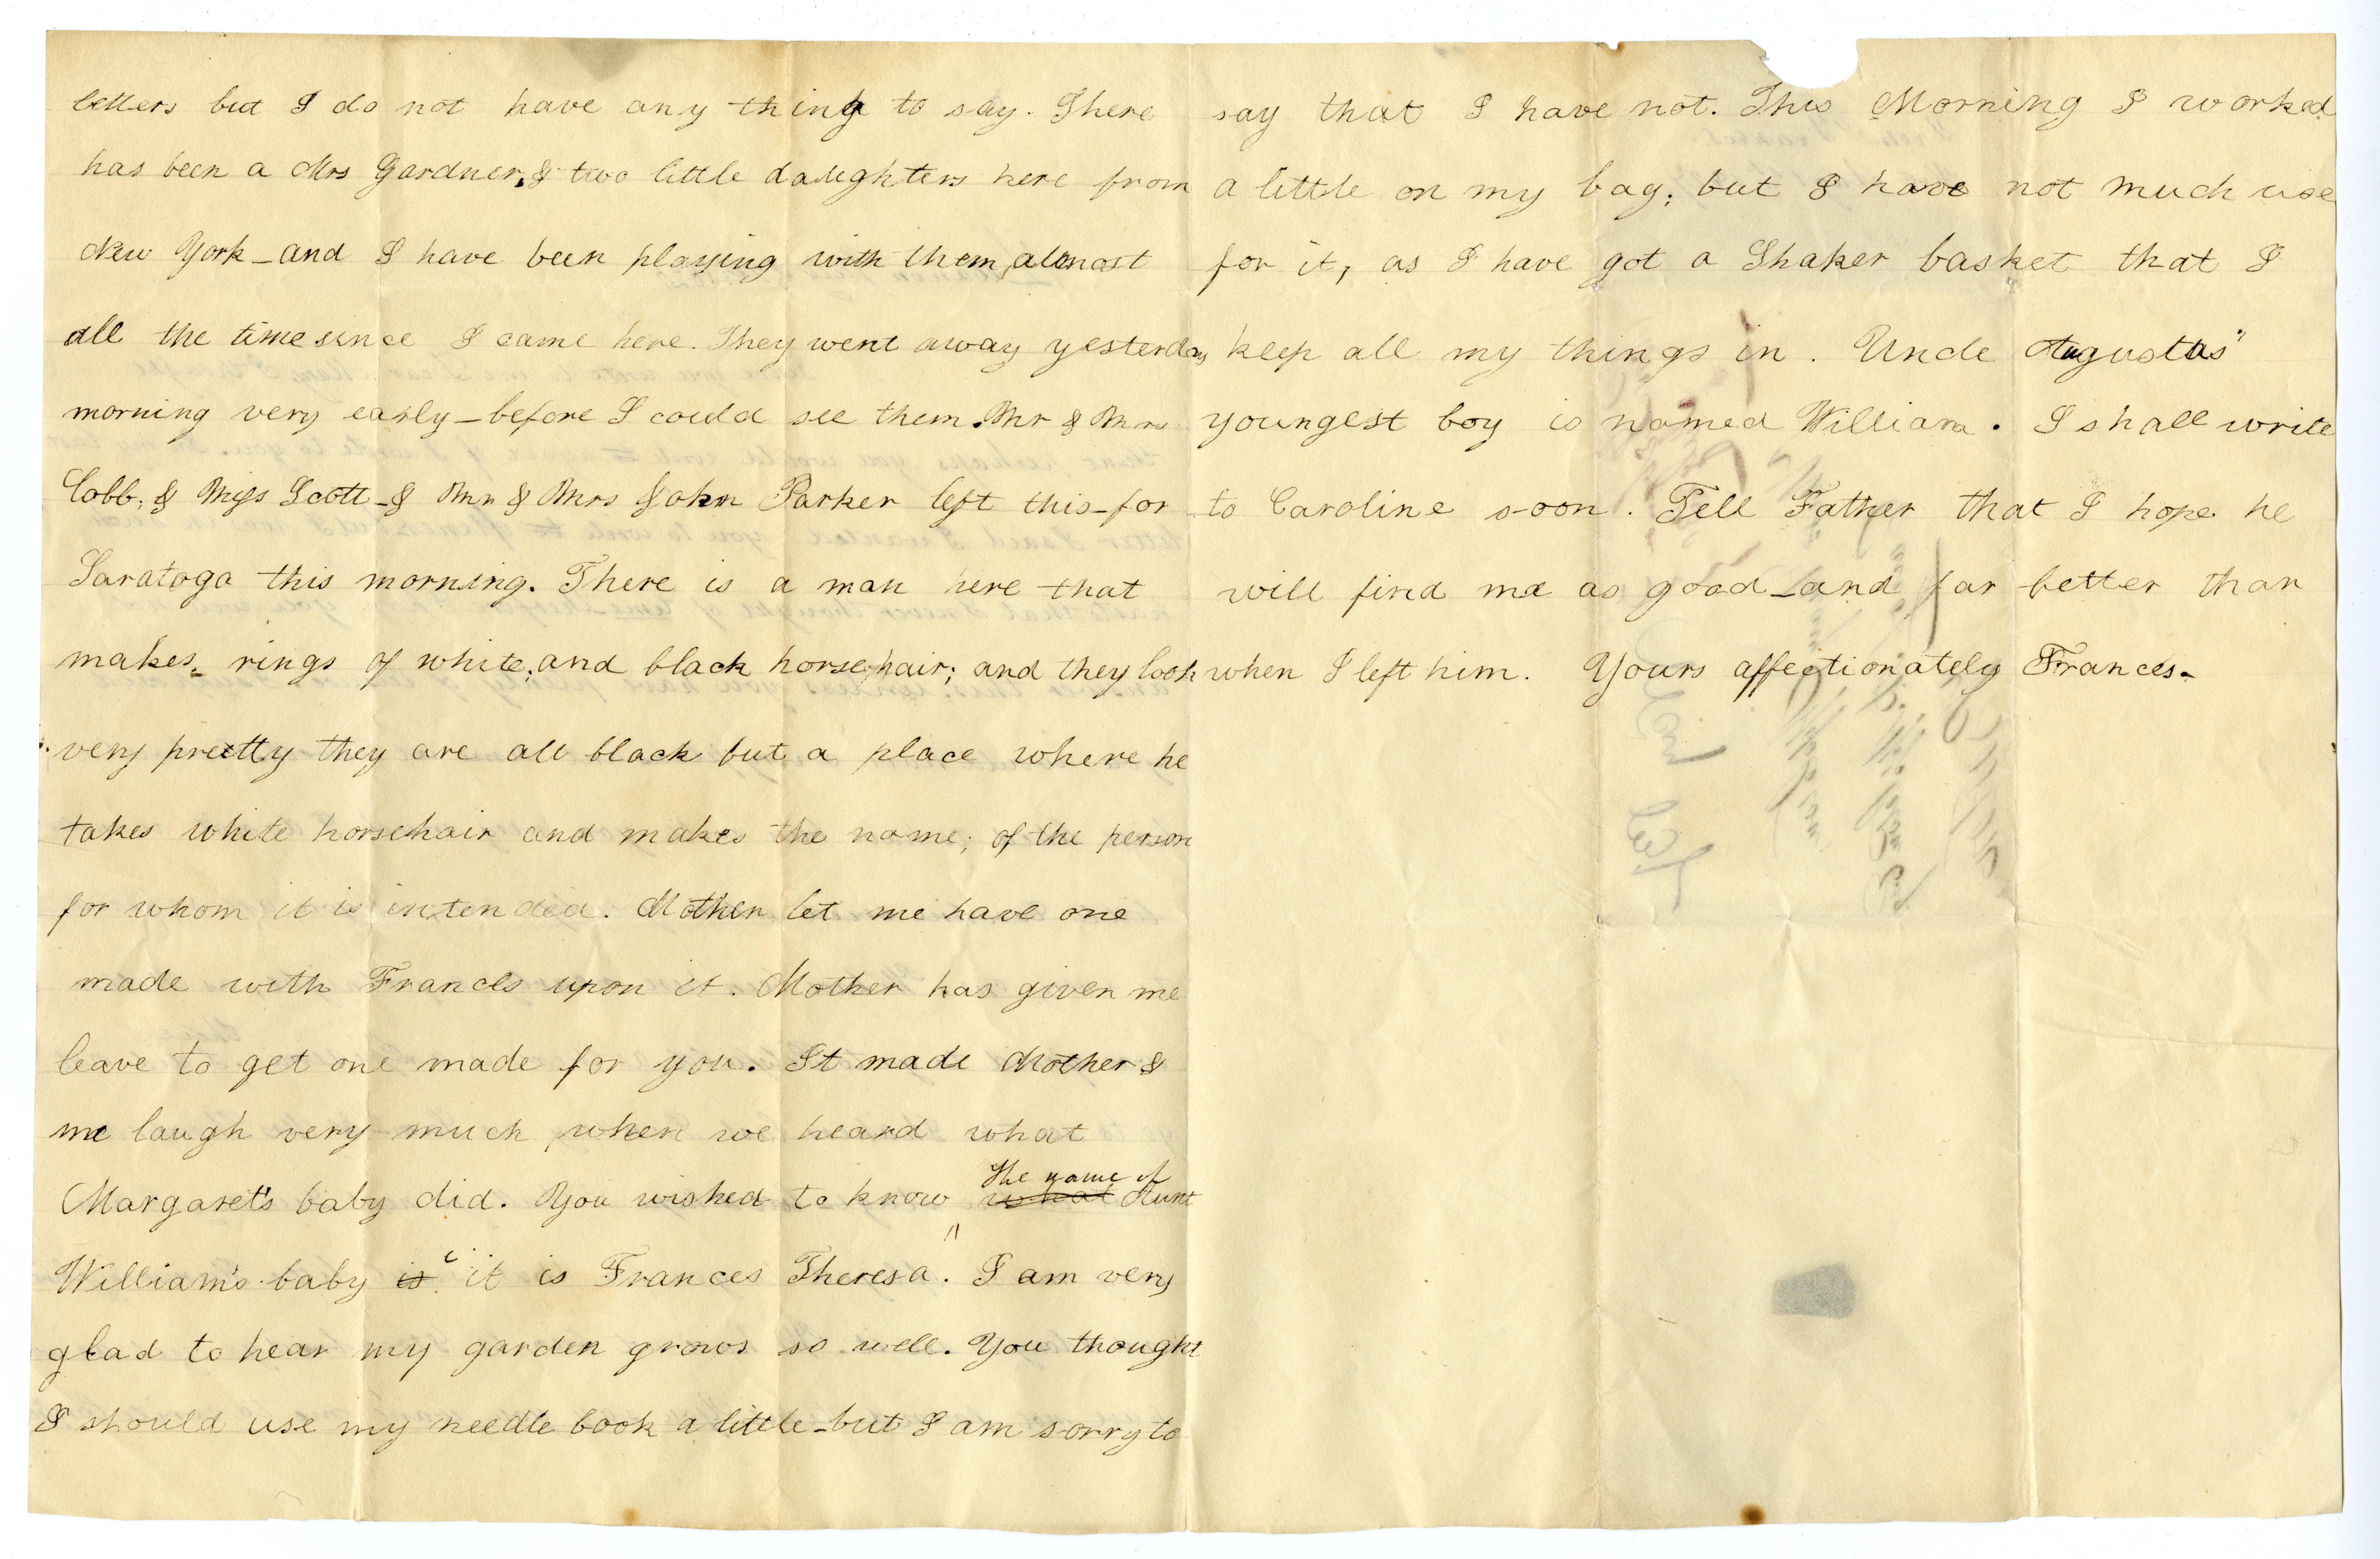 letters but I do not have any thing to say. There
has been a Mrs Gardner, & two little daughters here from
New York_and I have been playing with them, almost
all the time since I came here. They went away yesterday
morning very early_before I could see them. Mr & Mrs
Cobb, & Miss Scott_& Mr & Mrs John Parker left this_for
Saratoga this morning. There is a man here that
makes rings of white, and black horsehair; and they look
very pretty they are all black but a place where he
takes white horsehair and makes the name; of the person
for whom it is intended. Mother let me have one
made with Frances upon it. Mother has given me
leave to get one made for you. It made Mother &
me laugh very much when we heard what
Margaret's baby did. You wished to know what the name of Aunt
William's baby is it is Frances Theresa. I am very
glad to hear my garden grows so well. You thought
I should use my needle book a little_but I am sorry to
say that I have not. This Morning I worked
a little on my bag; but I have not much use
for it, as I have got a Shaker basket that I
keep all my things in. Uncle Augustus"
youngest boy is named William. I shall write
to Caroline soon. Tell Father that I hope he
will find me as good_and far better than
when I left him. Yours affectionately Frances_